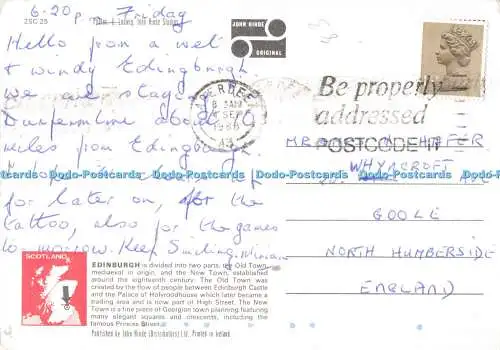 6.20p Friday
2SC 25
JOHN HINDE
ORIGINAL
Hello from a wet
& windy Edingburgh
we are staying
Dunfermline about 19
miles from Edingburgh.
for later on, for the
tattoo, also for the games
to morrow. Keep Smiling. Miriam
ABERDEEN
8 AM
SEP
1986
Be properly
addressed
POSTCODE IT
WHYNCROFT
GOOLE
NORTH HUMBERSIDE
ENGLAND
Dodo-Postcards Dodo-Postcards Dodo-Postcards Dodo-Postcards Dodo-Postcards
SCOTLAND
EDINBURGH is divided into two parts, the Old Town,
mediaeval in origin, and the New Town, established
around the eighteenth century. The Old Town was
created by the flow of people between Edinburgh Castle
and the Palace of Holyroodhouse which later became a
trading area and is now part of High Street. The New
Town is a fine piece of Georgian town planning featuring
many elegant squares and crescents, including the
famous Princes Street.
Published by John Hinde (Distributors) Ltd. Printed in Ireland.